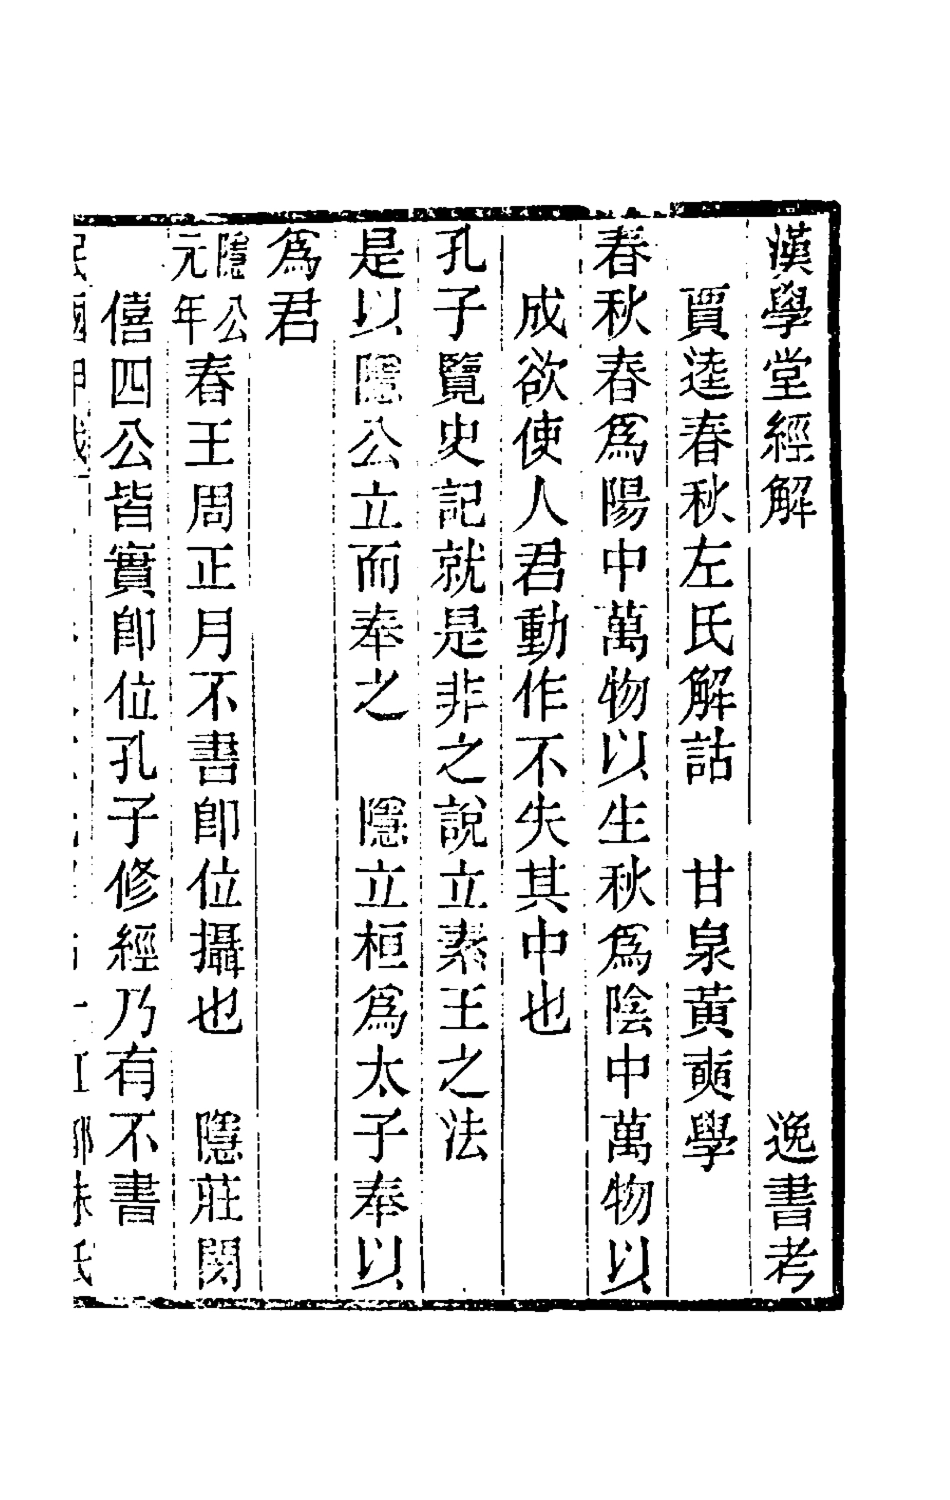 漢學堂經解　逸書考
賈逵春秋左氏解詁　甘泉黃奭學
春秋春爲陽中萬物以生秋爲陰中萬物以
成欲使人君動作不失其中也
孔子覽史記就是非之說立素王之法
是以隱公立而奉之　隱立桓爲太子奉以
爲君
隱公
元年
春王周正月不書卽位攝也　隱莊閔
僖四公皆實卽位孔子修經乃有不書